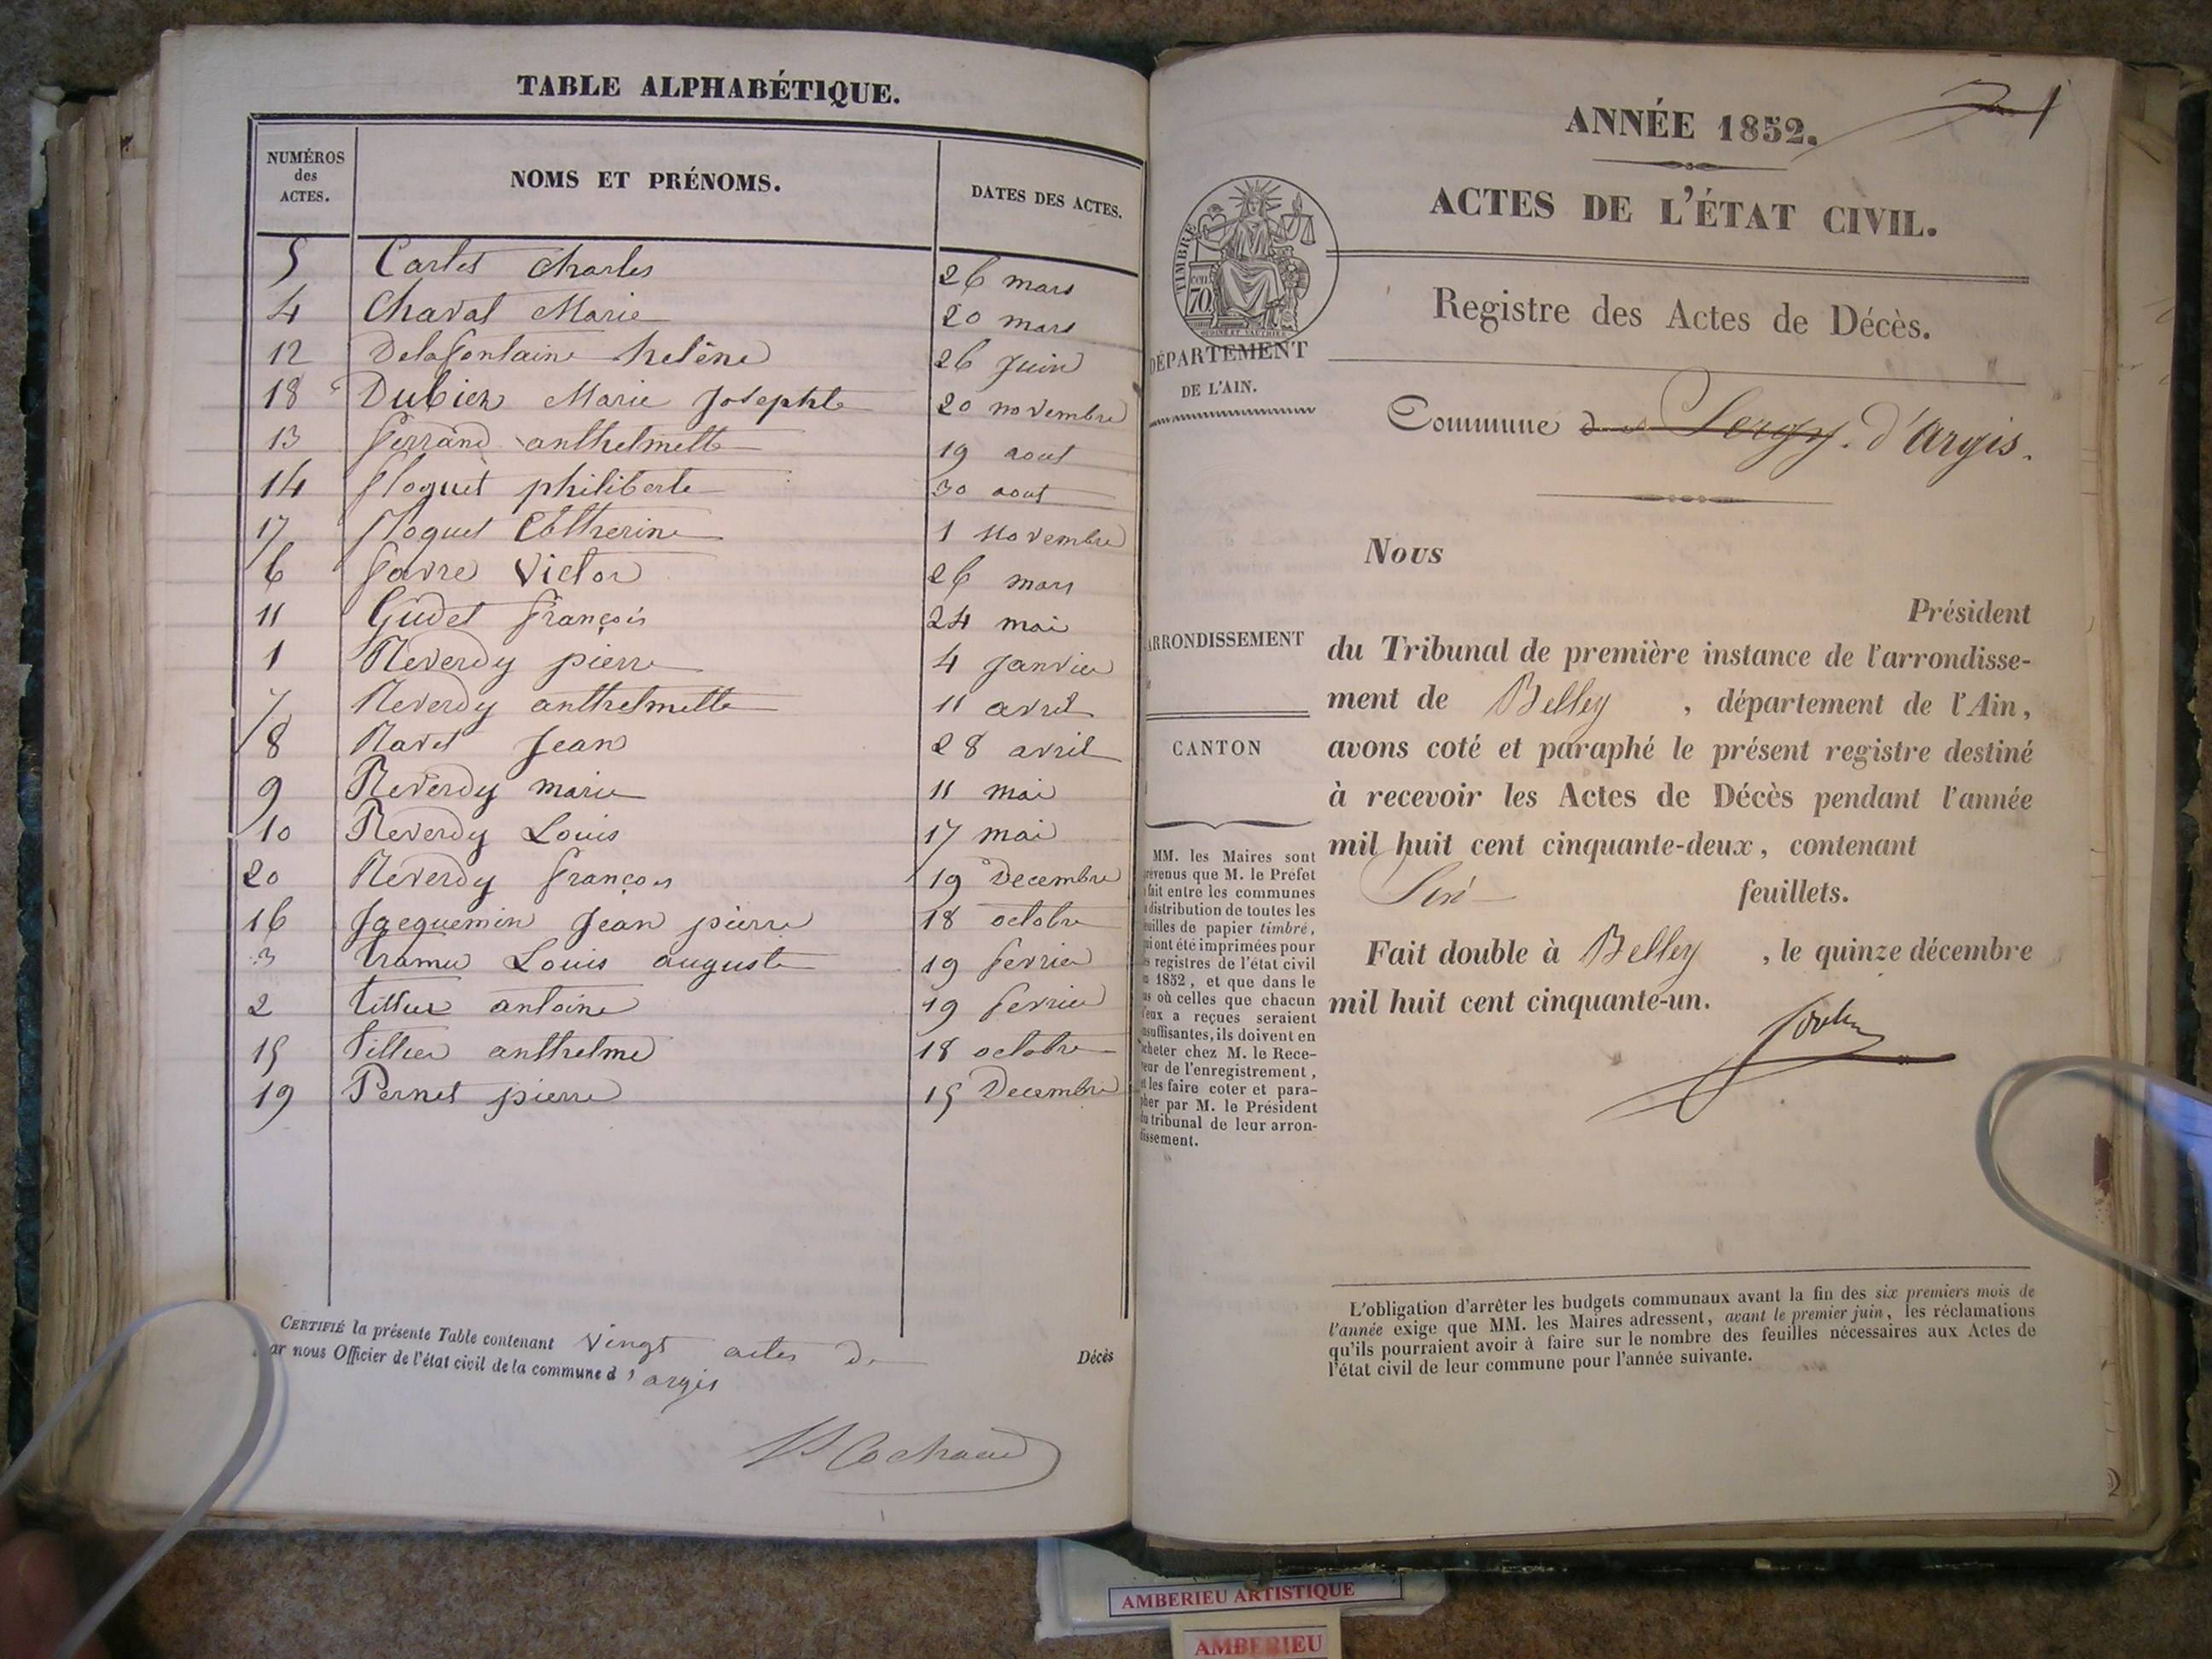 TABLE ALPHABÉTIQUE.
NUMÉROS des ACTES. NOMS ET PRÉNOMS. DATES DES ACTES.
5 Carlet Charles 26 mars
4 Chaval Marie 20 mars
12 Delafontaine helène 26 Juin
18 Dubien Marie Josephte 20 novembre
13 ferrand anthelmette 19 aout
14 floquet philiberte 30 aout
17 floquet Catherine 1 Novembre
6 favre Victor 26 mars
11 Gudet françois 24 mai
1 Reverdy pierre 4 Janvier
7 Reverdy anthelmette 11 avril
8 Ravet Jean 28 avril
9 Reverdy marie 11 mai
10 Reverdy Louis 17 mai
20 Reverdy françois 19 Decembre
16 Jacquemin Jean pierre 18 octobre
3 tramu Louis auguste 19 fevrier
2 tillier antoine 19 fevrier
15 tillier anthelme 18 octobre
19 Pernet pierre 15 Decembre
CERTIFIÉ la présente Table contenant Vingt actes de Décès
par nous Officier de l'état civil de la commune d'argis
ANNÉE 1852.
ACTES DE L'ÉTAT CIVIL.
TIMBRE
70
Registre des Actes de Décès.
DÉPARTEMENT
DE L'AIN.
Commune de Lergy. d'Argis.
Nous
Président
ARRONDISSEMENT
du Tribunal de première instance de l'arrondisse-
ment de Belley, département de l'Ain,
CANTON
avons coté et paraphé le présent registre destiné
à recevoir les Actes de Décès pendant l'année
mil huit cent cinquante-deux, contenant
feuillets.
Fait double à Belley, le quinze décembre
mil huit cent cinquante-un.
MM. les Maires sont
prévenus que M. le Préfet
fait entre les communes
distribution de toutes les
feuilles de papier timbré,
qui ont été imprimées pour
les registres de l'état civil
en 1852, et que dans le
cas où celles que chacun
d'eux a reçues seraient
insuffisantes, ils doivent en
acheter chez M. le Rece-
veur de l'enregistrement,
et les faire coter et para-
pher par M. le Président
du tribunal de leur arron-
dissement.
L'obligation d'arrêter les budgets communaux avant la fin des six premiers mois de
l'année exige que MM. les Maires adressent, avant le premier juin, les réclamations
qu'ils pourraient avoir à faire sur le nombre des feuilles nécessaires aux Actes de
l'état civil de leur commune pour l'année suivante.
AMBERIEU ARTISTIQUE
AMBERIEU